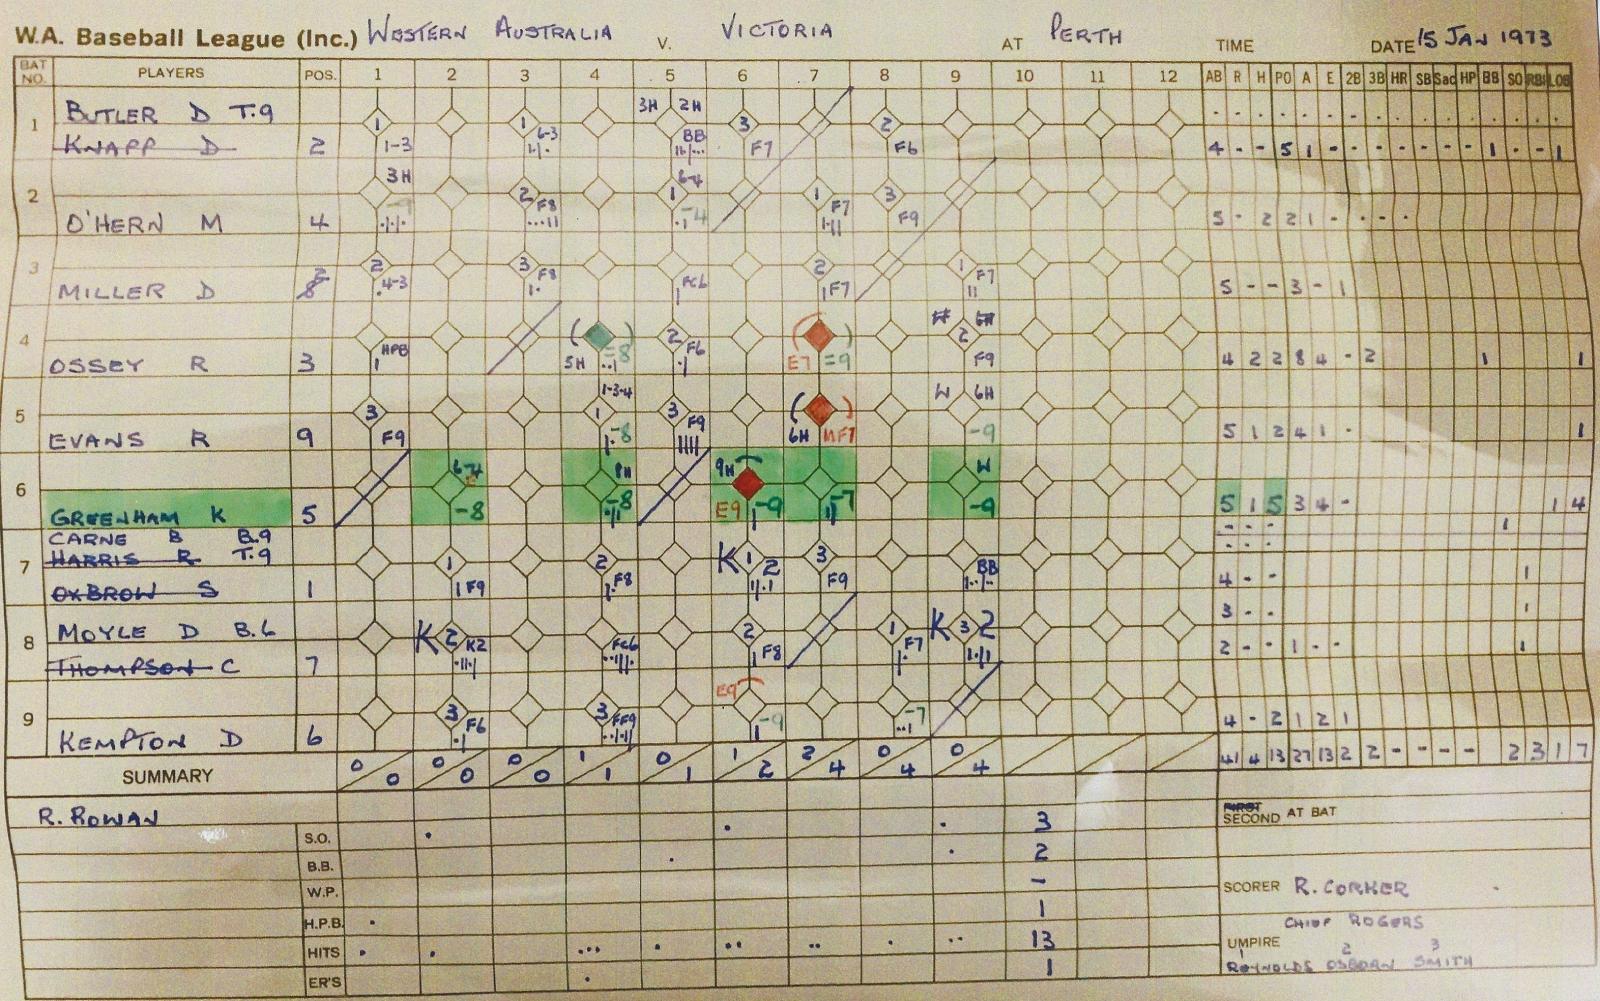 W.A. Baseball League (Inc.) WESTERN AUSTRALIA V. VICTORIA AT PERTH TIME DATE 15 JAN 1973
BAT NO. PLAYERS POS. 1 2 3 4 5 6 7 8 9 10 11 12 AB R H PO A E 2B 3B HR SB Sac HP BB SO RBI LOB
BUTLER D T.9 3H 2H
1 1 1 3 2
KNAPP D 2 1-3 6-3 BB F7 F6 4 - - 5 1 - - - - - - - 1 - - 1
3H 6-4
2 2 1 1 3
O'HERN M 4 -9 F8 -4 F7 F9 5 - 2 2 1 - - - -
3 2 3 2 1
MILLER D 8 4-3 F8 FC6 F7 F7 5 - - 3 - 1
4 2 2
OSSEY R 3 HPB 5H =8 F6 E7 =9 F9 4 2 2 8 4 - 2 1 1
1-3-4 W 6H
5 3 1 3
EVANS R 9 F9 -8 F9 6H MF7 -9 5 1 2 4 1 - 1
6 6-4 8H 9H W
GREENHAM K 5 -8 -8 E9 -9 -7 -9 5 1 5 3 4 - 1 4
CARNE B B.9 - - - 1
HARRIS R T.9 - - -
7 1 2 K 1 2 3 BB
OXBROW S 1 F9 F8 F9 4 - - 1
MOYLE D B.6 3 - - 1
8 K 2 K2 FC6 2 1 K 3 2
THOMPSON C 7 F8 F7 2 - - 1 - - 1
9 3 3 E9
KEMPTON D 6 F6 FF9 -9 -7 4 - 2 1 2 1
SUMMARY 0/0 0/0 0/0 1/1 0/1 1/2 2/4 0/4 0/4 41 4 13 27 13 2 2 - - - - 2 3 1 7
R. ROWAN
FIRST
SECOND AT BAT
S.O. . . . 3
B.B. . . 2
W.P. -
SCORER R. CORKER
H.P.B. . 1
CHIEF ROGERS
HITS . . ... . .. .. . .. 13
UMPIRE 1 2 3
REYNOLDS OSBORN SMITH
ER'S . 1